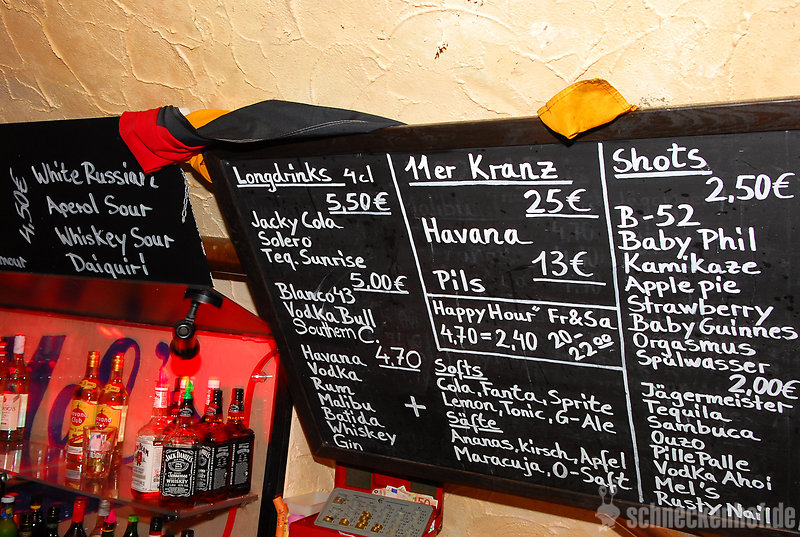 4,50€
White Russian
Aperol Sour
Whiskey Sour
Daiquiri
Longdrinks 4cl
5,50€
Jacky Cola
Solero
Teq. Sunrise
5,00€
Blanco43
Vodka Bull
Southern C.
4,70
Havana
Vodka
Rum
Malibu
Batida
Whiskey
Gin
+
11er Kranz
25€
Havana
13€
Pils
Happy Hour" Fr&Sa
4,70=2,40 20-22.00
Softs
Cola, Fanta, Sprite
Lemon, Tonic, G-Ale
Säfte
Ananas, Kirsch, Apfel
Maracuja, O-Saft
Shots
2,50€
B-52
Baby Phil
Kamikaze
Apple pie
Strawberry
Baby Guinnes
Orgasmus
Spülwasser
2,00€
Jägermeister
Tequila
Sambuca
Ouzo
Pille Palle
Vodka Ahoi
Mel's
Rusty Nail
Havana Club
JACK DANIEL'S
schneckenhof.de